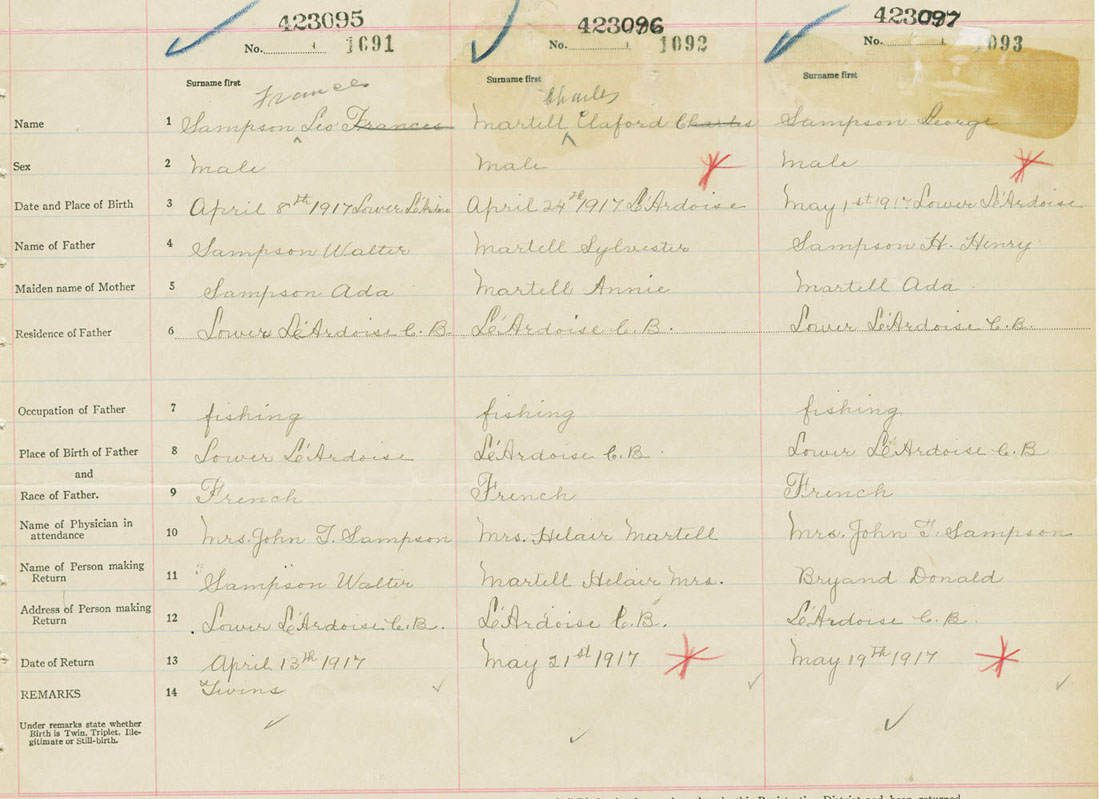 423095 423096 423097
No. 1691 No. 1692 No. 1693
Surname first Surname first Surname first
Frances Charles
Name 1 Sampson Leo Frances Martell Claford Charles Sampson George
Sex 2 Male Male Male
Date and Place of Birth 3 April 8th 1917 Lower L'Ardoise April 24th 1917 L'Ardoise May 1st 1917 Lower L'Ardoise
Name of Father 4 Sampson Walter Martell Sylvester Sampson H. Henry
Maiden name of Mother 5 Sampson Ada Martell Annie Martell Ada
Residence of Father 6 Lower L'Ardoise C.B. L'Ardoise C.B. Lower L'Ardoise C.B.
Occupation of Father 7 fishing fishing fishing
Place of Birth of Father 8 Lower L'Ardoise L'Ardoise C.B. Lower L'Ardoise C.B
and
Race of Father. 9 French French French
Name of Physician in
attendance 10 Mrs. John T. Sampson Mrs. Helair Martell Mrs. John T. Sampson
Name of Person making
Return 11 Sampson Walter Martell Helair Mrs. Bryand Donald
Address of Person making
Return 12 Lower L'Ardoise C.B. L'Ardoise C.B. L'Ardoise C.B.
Date of Return 13 April 13th 1917 May 21st 1917 May 19th 1917
REMARKS 14 Twins
Under remarks state whether
Birth is Twin, Triplet, Ille-
gitimate or Still-birth.